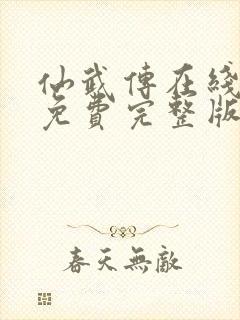 仙武傳在綫
免費完整版
春天無敵